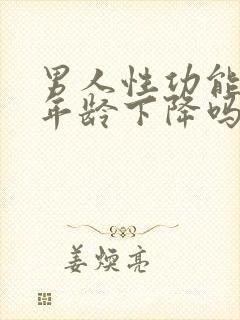 男人性功能
年龄下降吗
姜煐亮